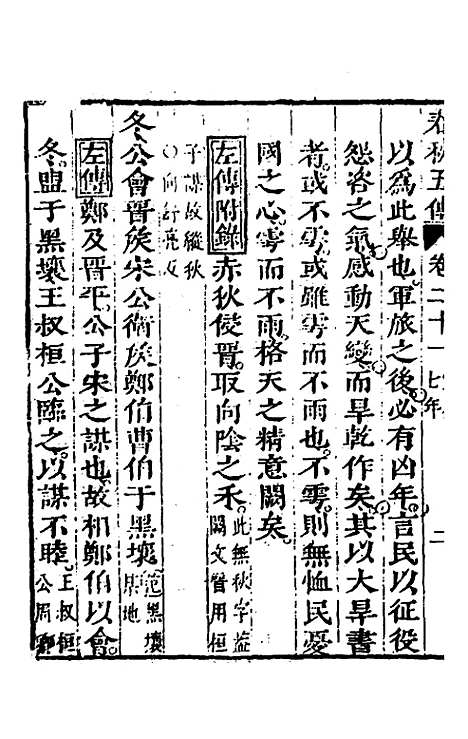 春秋五傳 卷二十一 七年 二
以爲此舉也軍旅之後必有凶年言民以征役
怨咨之氣感動天變而旱乾作矣其以大旱書
者或不雩或雖雩而不雨也不雩則無恤民憂
國之心雩而不雨格天之精意闕矣
左傳附錄赤狄侵晉取向陰之禾此無秋字葢
闕文晉用桓
子謀故縱狄
○向舒亮反
冬公會晉矦宋公衛矦鄭伯曹伯于黑壤范黑壤
晉地
左傳鄭及晉平公子宋之謀也故相鄭伯以會
冬盟于黑壤王叔桓公臨之以謀不睦王叔桓
公周卿